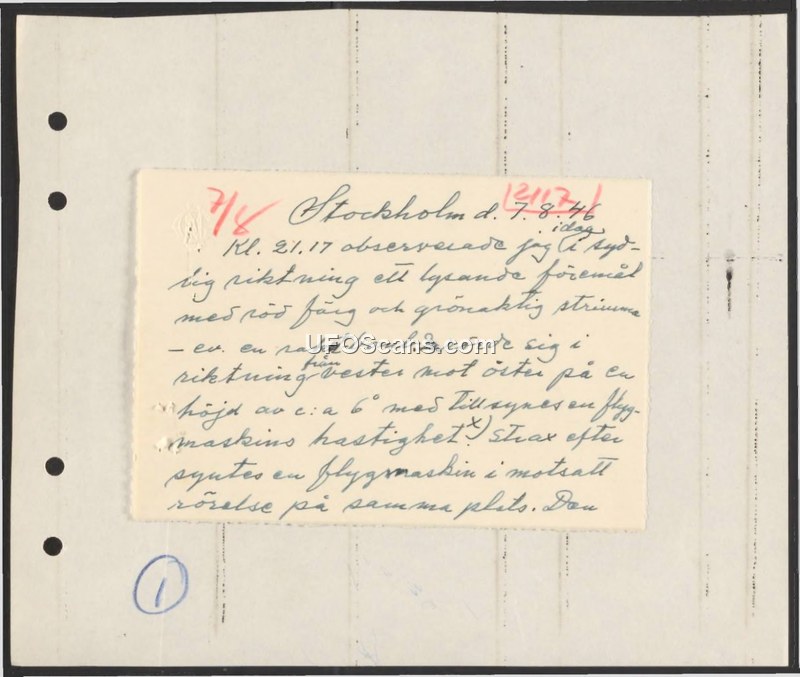 7/8
2117
Stockholm d. 7.8.46
idag
Kl. 21.17 observerade jag i syd-
lig riktning ett lysande föremål
med röd färg och grönaktig strimma
– ev. en sig i
UFOScans.com
från
riktning vester mot öster på en
höjd av c:a 6° med tillsynes en flyg-
maskins hastighet. x) Strax efter
syntes en flygmaskin i motsatt
rörelse på samma plats. Den
1